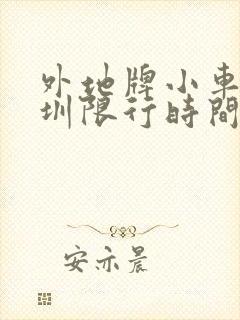 外地牌小車
圳限行時間
安亦晨